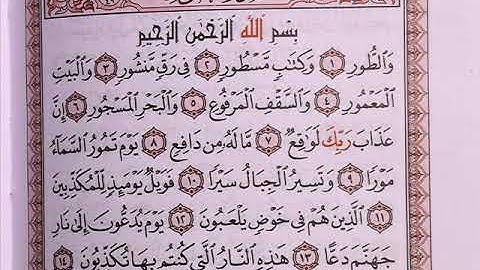 بِسْمِ ٱللَّهِ ٱلرَّحْمَٰنِ ٱلرَّحِيمِ
وَٱلطُّورِ ١ وَكِتَٰبٍ مَّسْطُورٍ ٢ فِى رَقٍّ مَّنشُورٍ ٣ وَٱلْبَيْتِ
ٱلْمَعْمُورِ ٤ وَٱلسَّقْفِ ٱلْمَرْفُوعِ ٥ وَٱلْبَحْرِ ٱلْمَسْجُورِ ٦ إِنَّ
عَذَابَ رَبِّكَ لَوَٰقِعٌ ٧ مَّا لَهُۥ مِن دَافِعٍ ٨ يَوْمَ تَمُورُ ٱلسَّمَآءُ
مَوْرًا ٩ وَتَسِيرُ ٱلْجِبَالُ سَيْرًا ١٠ فَوَيْلٌ يَوْمَئِذٍ لِّلْمُكَذِّبِينَ
١١ ٱلَّذِينَ هُمْ فِى خَوْضٍ يَلْعَبُونَ ١٢ يَوْمَ يُدَعُّونَ إِلَىٰ نَارِ
جَهَنَّمَ دَعًّا ١٣ هَٰذِهِ ٱلنَّارُ ٱلَّتِى كُنتُم بِهَا تُكَذِّبُونَ ١٤